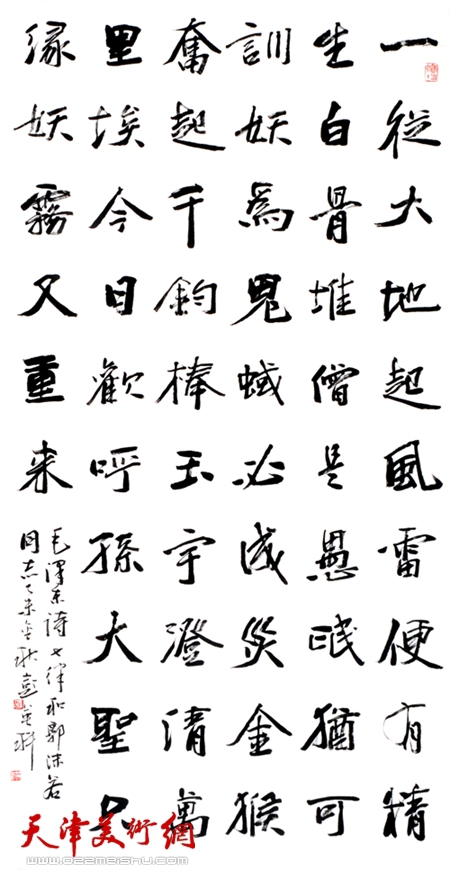 一從大地起風雷便有精
生白骨堆僧是愚氓猶可
訓妖爲鬼蜮必成災金猴
奮起千鈞棒玉宇澄清萬
里埃今日歡呼孫大聖只
緣妖霧又重來
毛澤東詩七律和郭沫若
同志乙未金秋彭英科
天津美術網
www.022meishu.com